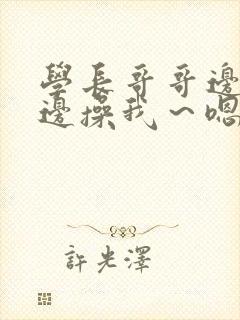 學長哥哥邊
邊操我～嗯
許光澤